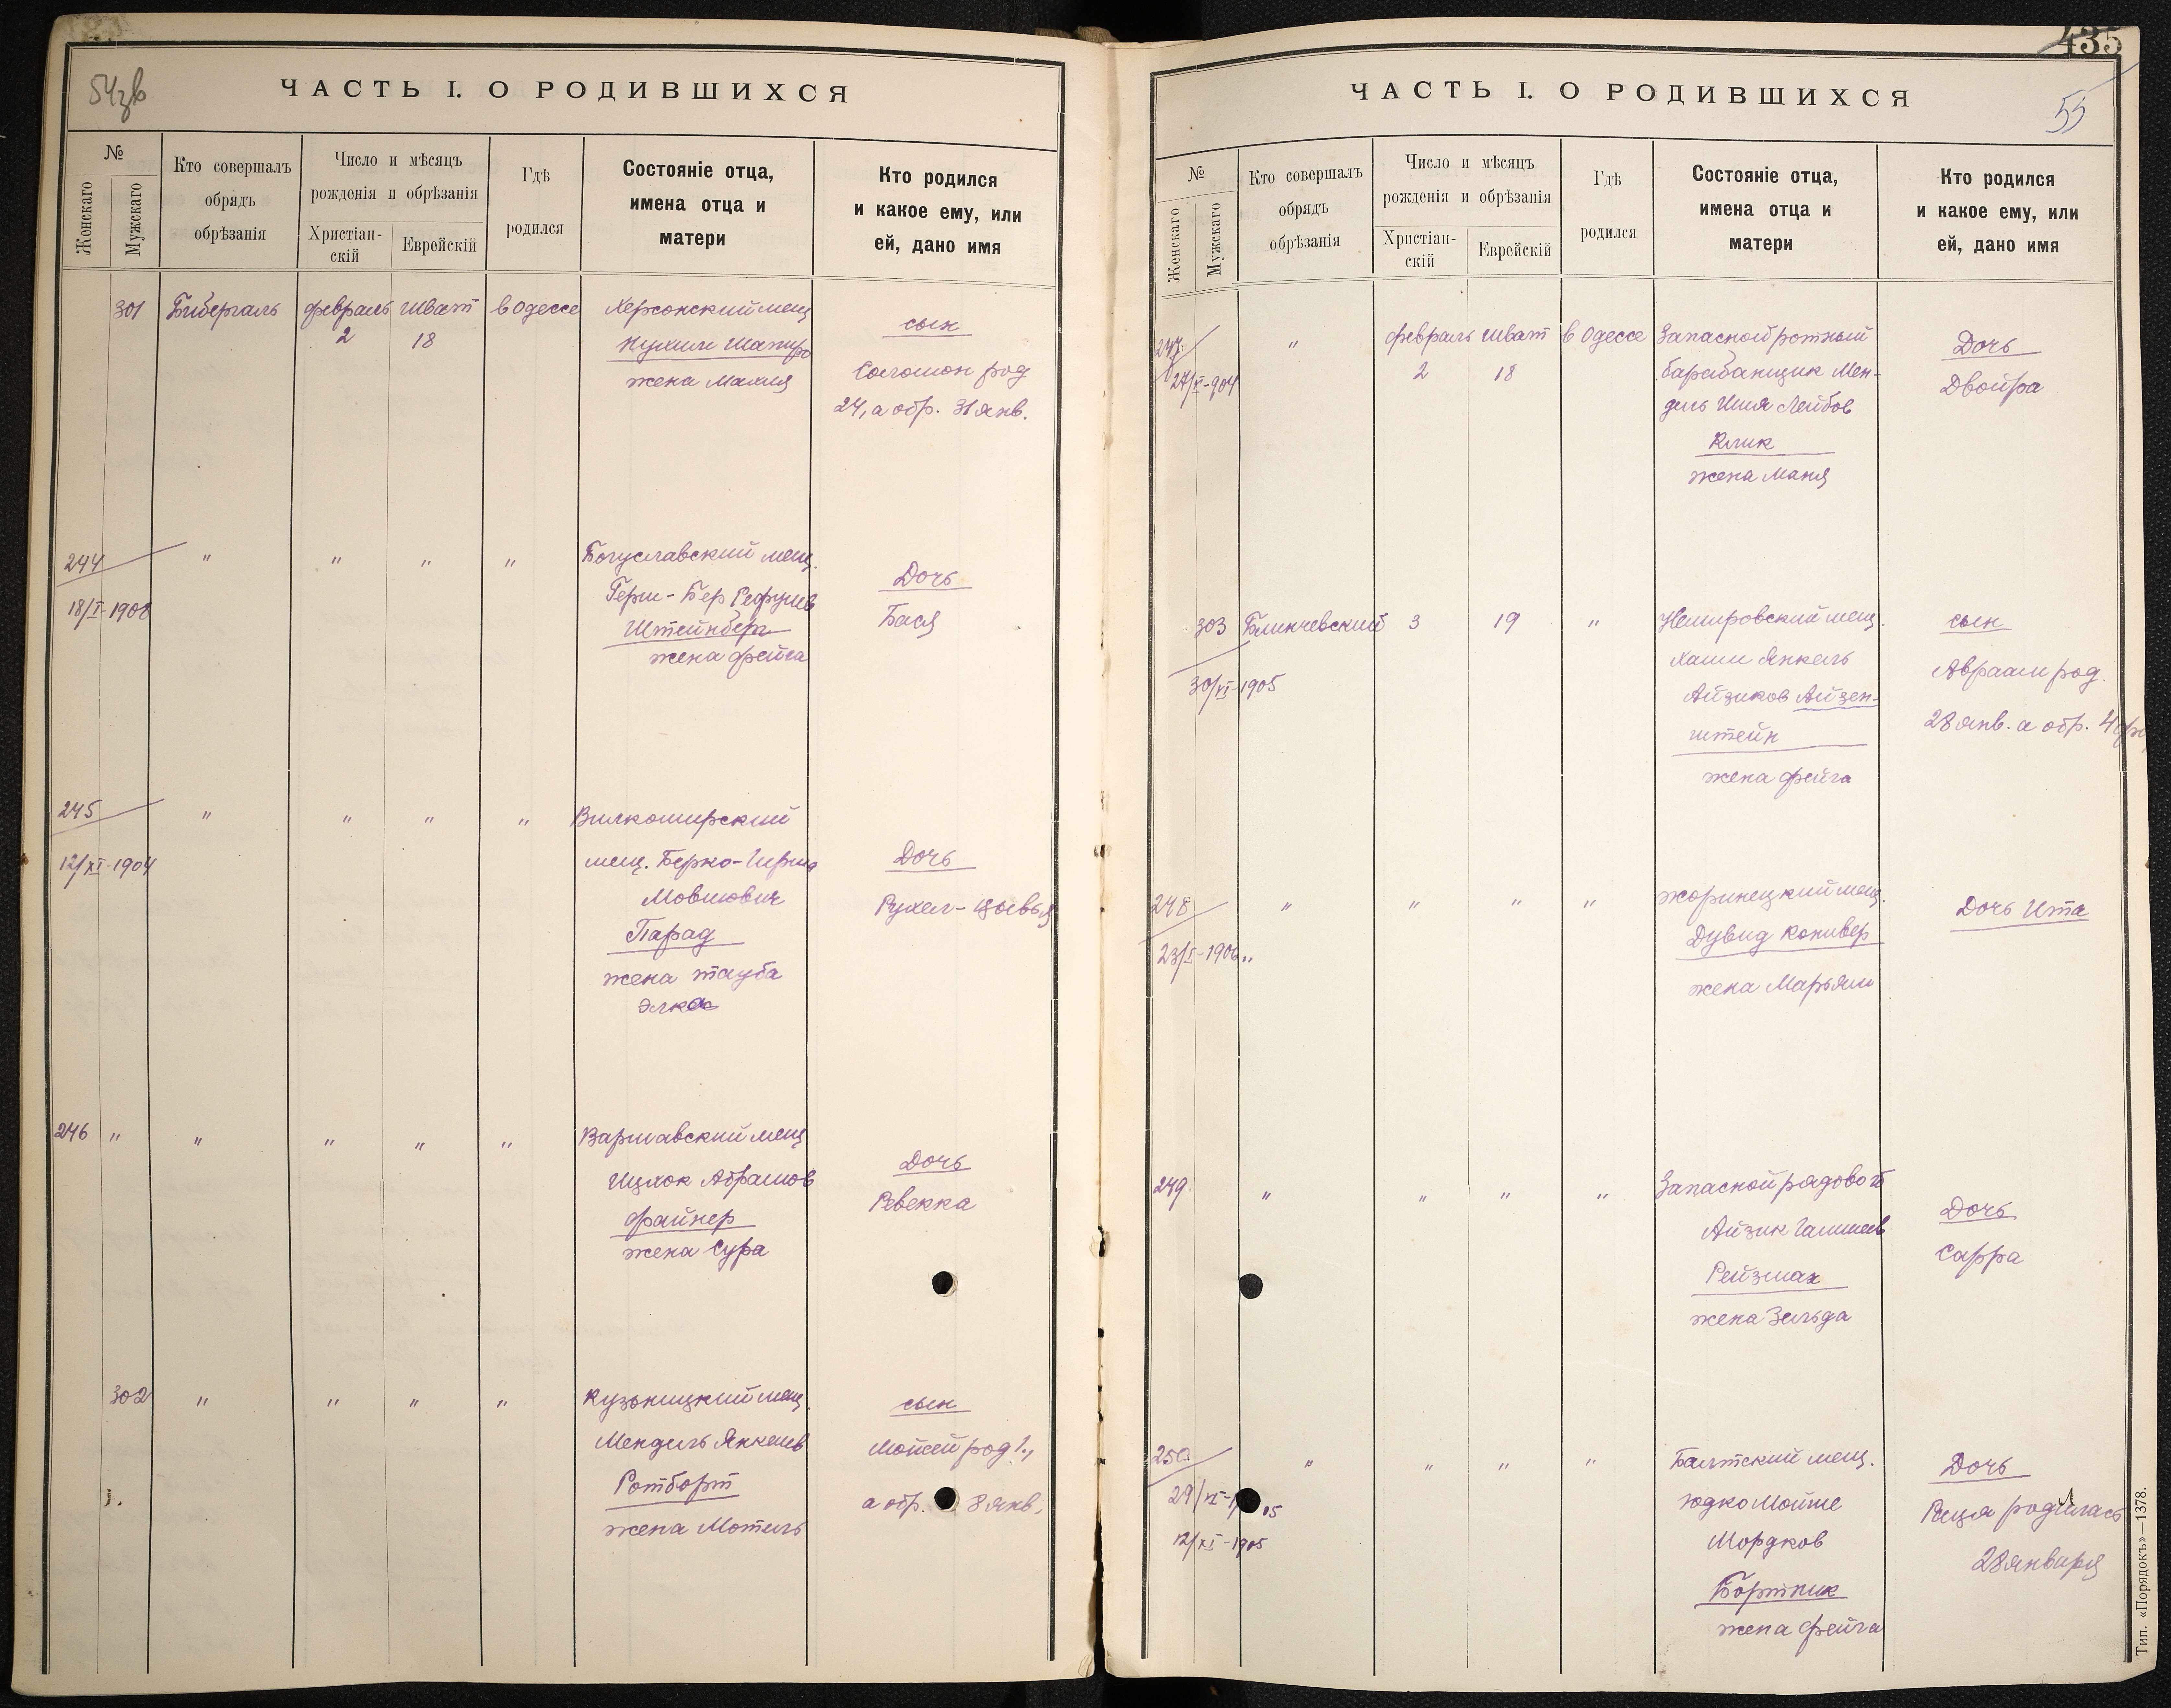 54зв
ЧАСТЬ I. О РОДИВШИХСЯ
№
Женскаго
Мужскаго
Кто совершалъ
обрядъ
обрѣзанія
Число и мѣсяцъ
рожденія и обрѣзанія
Христіан-
скій
Еврейскій
Гдѣ
родился
Состояніе отца,
имена отца и
матери
Кто родился
и какое ему, или
ей, дано имя
301 Бибергаль февраль Шват в Одессе Херсонский мещ
2 18
Нухим Шапиро
жена Малия
сын
Соломон род
24, а обр. 31 янв.
244 " " " " Богуславский мещ.
18/I-1908
Герш-Бер
Штейнберг
жена Фейга
Дочь
Бася
245 " " " " Вилкомирский
12/XI-1904
мещ. Берко-
Мовшович
Парад
жена Тауба
Элка
Дочь
Рухел-
246 " " " " " Варшавский мещ
Ицхок Абрамов
Файнер
жена Сура
Дочь
Ревекка
302 " " " " Кузьницкий мещ.
Мендель Янкелев
Ротборт
жена Мотель
сын
Мойсей род 1.,
а обр. 8 янв.
435
ЧАСТЬ I. О РОДИВШИХСЯ
55
№
Женскаго
Мужскаго
Кто совершалъ
обрядъ
обрѣзанія
Число и мѣсяцъ
рожденія и обрѣзанія
Христіан-
скій
Еврейскій
Гдѣ
родился
Состояніе отца,
имена отца и
матери
Кто родился
и какое ему, или
ей, дано имя
247 " февраль Шват в Одессе Запасной ротный
2 18
барабанщик Мен-
дель Шия Лейбов
Клик
жена Маня
Дочь
Двойра
303 Блинчевский 3 19 " Немировский мещ.
30/VI-1905
Хаим Янкель
Айзиков Айзен-
штейн
жена Фейга
сын
Авраам род.
28 янв. а обр. 4 фев
248 " " " " мещ.
23/I-1906
ДувидКонивер
жена Марьям
Дочь Ита
249 " " " " Запасной рядовой
Айзик
Рейзман
жена Зельда
Дочь
Сарра
250 " " " " Балтский мещ.
12/XI-1905
Юдко Мойше
Мордков
Бортник
жена Фейга
Дочь
родилась
28 января
Тип. «Порядокъ»—1378.